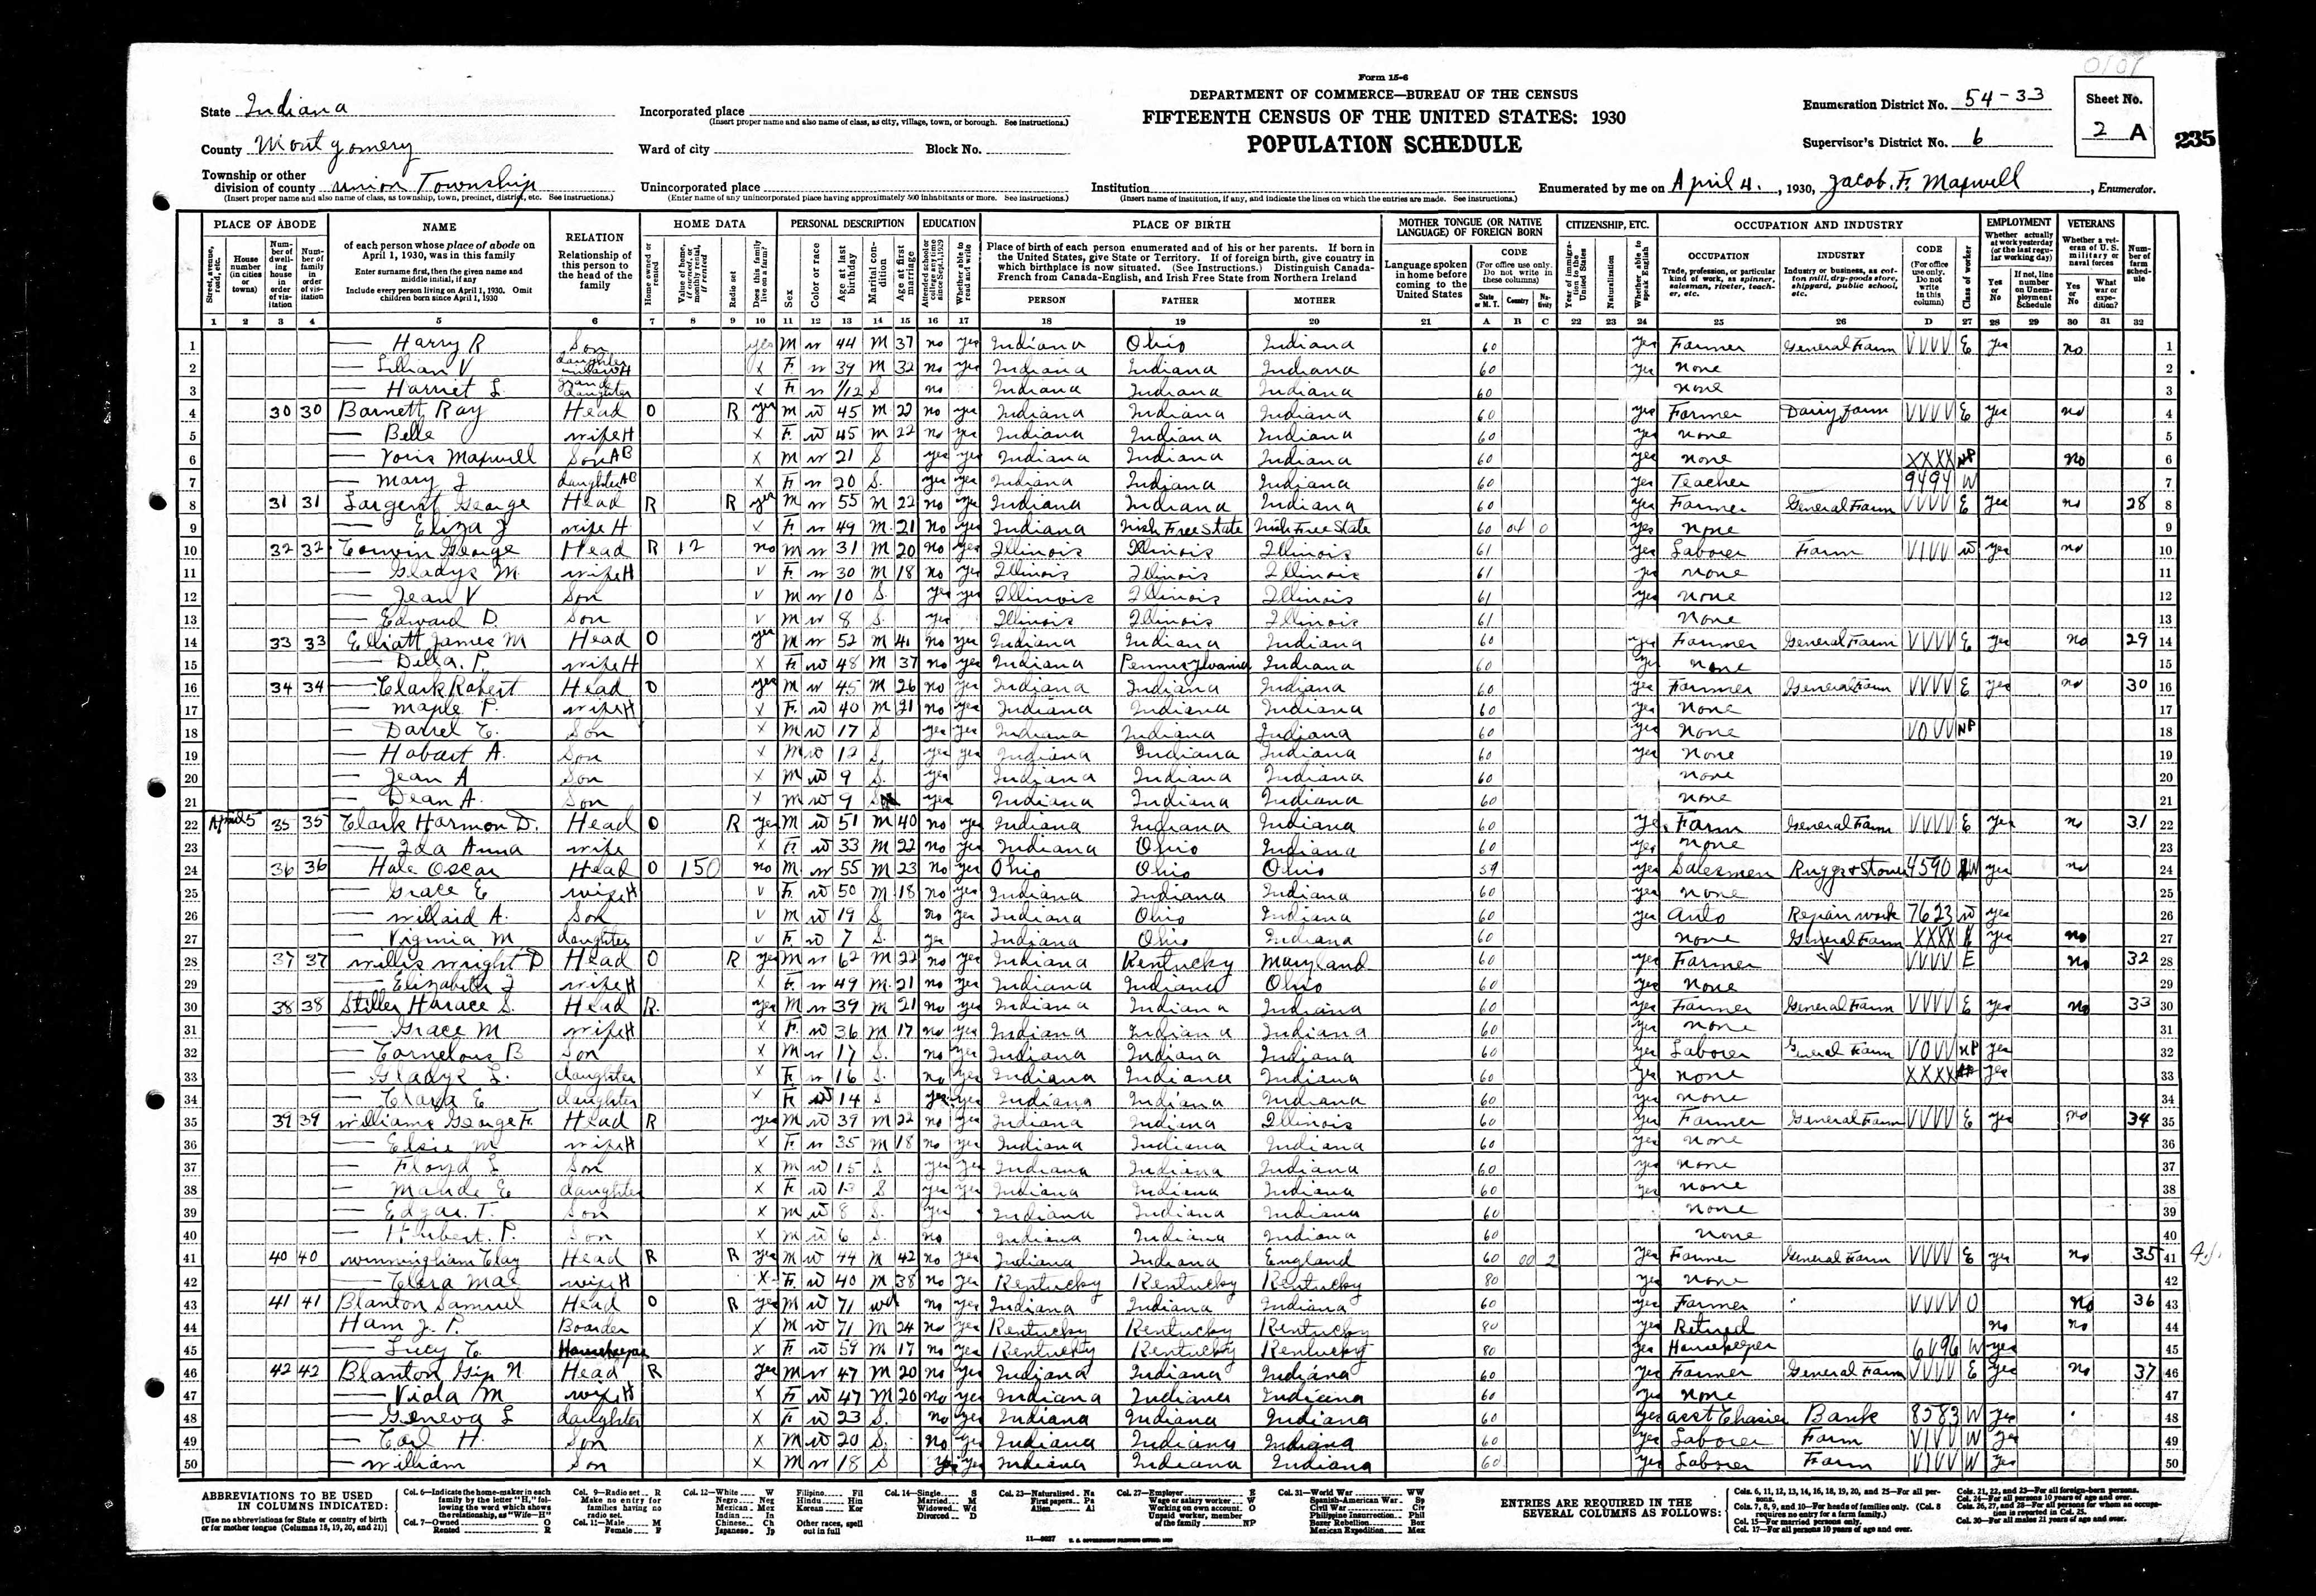 0101
Form 15-6
DEPARTMENT OF COMMERCE—BUREAU OF THE CENSUS
FIFTEENTH CENSUS OF THE UNITED STATES: 1930
POPULATION SCHEDULE
State Indiana
County Montgomery
Township or other division of county Union Township
(Insert proper name and also name of class, as township, town, precinct, district, etc. See instructions.)
Incorporated place
(Insert proper name and also name of class, as city, village, town, or borough. See instructions.)
Ward of city Block No.
Unincorporated place
(Enter name of any unincorporated place having approximately 500 inhabitants or more. See instructions.)
Institution
(Insert name of institution, if any, and indicate the lines on which the entries are made. See instructions.)
Enumeration District No. 54-33
Supervisor's District No. 6
Sheet No. 2 A
235
Enumerated by me on April 4, 1930, Jacob. F. Maxwell, Enumerator.
PLACE OF ABODE NAME RELATION HOME DATA PERSONAL DESCRIPTION EDUCATION PLACE OF BIRTH MOTHER TONGUE (OR NATIVE LANGUAGE) OF FOREIGN BORN CITIZENSHIP, ETC. OCCUPATION AND INDUSTRY EMPLOYMENT VETERANS
of each person whose place of abode on April 1, 1930, was in this family
Enter surname first, then the given name and middle initial, if any
Include every person living on April 1, 1930. Omit children born since April 1, 1930
Relationship of this person to the head of the family
Place of birth of each person enumerated and of his or her parents. If born in the United States, give State or Territory. If of foreign birth, give country in which birthplace is now situated. (See Instructions.) Distinguish Canada-French from Canada-English, and Irish Free State from Northern Ireland
PERSON FATHER MOTHER
1 2 3 4 5 6 7 8 9 10 11 12 13 14 15 16 17 18 19 20 21 A B C 22 23 24 25 26 D 27 28 29 30 31 32
1 — Harry R Son yes M W 44 M 37 no yes Indiana Ohio Indiana 60 yes Farmer General Farm VVVV E yes no 1
2 — Lillian V daughter in law H X F W 39 M 32 no yes Indiana Indiana Indiana 60 yes none 2
3 — Harriet L. Grand daughter X F W 1/12 S no Indiana Indiana Indiana 60 none 3
4 30 30 Barnett Ray Head O R yes M W 45 M 22 no yes Indiana Indiana Indiana 60 yes Farmer Dairy farm VVVV E yes no 4
5 — Belle wife H X F W 45 M 22 no yes Indiana Indiana Indiana 60 yes none 5
6 — Voris Maxwell Son AB X M W 21 S yes yes Indiana Indiana Indiana 60 yes none XXXX NP no 6
7 — Mary J daughter AB X F W 20 S. yes yes Indiana Indiana Indiana 60 yes Teacher 9494 W 7
8 31 31 Sargent George Head R R yes M W 55 M 22 no yes Indiana Indiana Indiana 60 yes Farmer General Farm VVVV E yes no 28 8
9 — Eliza J wife H. X F W 49 M 21 no yes Indiana Irish Free State Irish Free State 60 04 0 yes none 9
10 32 32 George Head R 12 no M W 31 M 20 no yes Illinois Illinois Illinois 61 yes Laborer Farm V1VV W yes no 10
11 — Gladys M. wife H V F W 30 M 18 no yes Illinois Illinois Illinois 61 yes none 11
12 — Jean V Son V M W 10 S. yes yes Illinois Illinois Illinois 61 yes none 12
13 — Edward D. Son V M W 8 S. yes Illinois Illinois Illinois 61 none 13
14 33 33 Elliott James M Head O yes M W 52 M 41 no yes Indiana Indiana Indiana 60 yes Farmer General Farm VVVV E yes no 29 14
15 — Della. P. wife H X F W 48 M 37 no yes Indiana Pennsylvania Indiana 60 yes none 15
16 34 34 — Clark Robert Head O yes M W 45 M 26 no yes Indiana Indiana Indiana 60 yes Farmer General Farm VVVV E yes no 30 16
17 — Maple P. wife H X F W 40 M 21 no yes Indiana Indiana Indiana 60 yes none 17
18 — Darrel E. Son X M W 17 S yes yes Indiana Indiana Indiana 60 yes none V0VV NP 18
19 — Hobart A. Son X M W 12 S. yes yes Indiana Indiana Indiana 60 yes none 19
20 — Jean A Son X M W 9 S. yes Indiana Indiana Indiana 60 none 20
21 — Dean A. Son X M W 9 S yes Indiana Indiana Indiana 60 none 21
22 April 5 35 35 Clark Harmon D. Head O R yes M W 51 M 40 no yes Indiana Indiana Indiana 60 yes Farm General Farm VVVV E yes no 31 22
23 — Ida Anna wife X F W 33 M 22 no yes Indiana Ohio Indiana 60 yes none 23
24 36 36 Hale Oscar Head O 150 no M W 55 M 23 no yes Ohio Ohio Ohio 59 yes Salesmen Ruggs & Stoves 4590 W yes no 24
25 — Grace E wife H V F W 50 M 18 no yes Indiana Indiana Indiana 60 yes none 25
26 — Willard A. Son V M W 19 S. no yes Indiana Ohio Indiana 60 yes Auto Repair work 7623 W yes 26
27 — Virginia M daughter V F W 7 S. yes Indiana Ohio Indiana 60 none General Farm XXXX yes no 27
28 37 37 Willis Wright D Head O R yes M W 62 M 22 no yes Indiana Kentucky Maryland 60 yes Farmer VVVV E no 32 28
29 — Elizabeth J wife H X F W 49 M 21 no yes Indiana Indiana Ohio 60 yes none 29
30 38 38 Stiller Harace S. Head R. yes M W 39 M 21 no yes Indiana Indiana Indiana 60 yes Farmer General Farm VVVV E yes no 33 30
31 — Grace M wife H X F W 36 M 17 no yes Indiana Indiana Indiana 60 yes none 31
32 — Cornelous B Son X M W 17 S. no yes Indiana Indiana Indiana 60 yes Laborer General Farm V0VV NP yes 32
33 — Gladys L. daughter X F W 16 S. no yes Indiana Indiana Indiana 60 yes none XXXX yes 33
34 — Clara E daughter X F W 14 S yes yes Indiana Indiana Indiana 60 yes none 34
35 39 39 Williams George F. Head R yes M W 39 M 22 no yes Indiana Indiana Illinois 60 yes Farmer General Farm VVVV E yes no 34 35
36 — Elsie M wife H X F W 35 M 18 no yes Indiana Indiana Indiana 60 yes none 36
37 — Floyd L Son X M W 15 S yes yes Indiana Indiana Indiana 60 yes none 37
38 — Maude E daughter X F W 13 S yes yes Indiana Indiana Indiana 60 yes none 38
39 — Edgar. T. Son X M W 8 S. yes Indiana Indiana Indiana 60 none 39
40 — Hubert. P. Son X M W 6 S. no Indiana Indiana Indiana 60 none 40
41 40 40 Winningham Clay Head R R yes M W 44 M 42 no yes Indiana Indiana England 60 00 2 yes Farmer General Farm VVVV E yes no 35 41
42 — Clera Mae wife H X F W 40 M 38 no yes Kentucky Kentucky Kentucky 80 yes none 42
43 41 41 Blanton Samuel Head O R yes M W 71 wd no yes Indiana Indiana Indiana 60 yes Farmer VVVV O no 36 43
44 Ham J. P. Boarder X M W 71 M 24 no yes Kentucky Kentucky Kentucky 80 yes Retired no no 44
45 — Lucy C. Housekeeper X F W 59 M 17 no yes Kentucky Kentucky Kentucky 80 yes Housekeeper 6V96 W yes 45
46 42 42 Blanton Gip N. Head R yes M W 47 M 20 no yes Indiana Indiana Indiana 60 yes Farmer General Farm VVVV E yes no 37 46
47 — Viola M wife H X F W 47 M 20 no yes Indiana Indiana Indiana 60 yes none 47
48 — Geneva L daughter X F W 23 S. no yes Indiana Indiana Indiana 60 yes asst Chasier Bank 8583 W yes 48
49 — Earl H. Son X M W 20 S. no yes Indiana Indiana Indiana 60 yes Laborer Farm V1VV W yes 49
50 — William Son X M W 18 S yes yes Indiana Indiana Indiana 60 yes Laborer Farm V1VV W yes 50
ABBREVIATIONS TO BE USED IN COLUMNS INDICATED:
[Use no abbreviations for State or country of birth or for mother tongue (Columns 18, 19, 20, and 21)]
Col. 6—Indicate the home-maker in each family by the letter "H," following the word which shows the relationship, as "Wife—H"
Col. 7—Owned O Rented R
Col. 9—Radio set R Make no entry for families having no radio set.
Col. 11—Male M Female F
Col. 12—White W Negro Neg Mexican Mex Indian In Chinese Ch Japanese Jp Filipino Fil Hindu Hin Korean Kor Other races, spell out in full
Col. 14—Single S Married M Widowed Wd Divorced D
Col. 23—Naturalized Na First papers Pa Alien Al
Col. 27—Employer E Wage or salary worker W Working on own account O Unpaid worker, member of the family NP
Col. 31—World War WW Spanish-American War Sp Civil War Civ Philippine Insurrection Phil Boxer Rebellion Box Mexican Expedition Mex
ENTRIES ARE REQUIRED IN THE SEVERAL COLUMNS AS FOLLOWS:
Cols. 6, 11, 12, 13, 14, 16, 18, 19, 20, and 25—For all persons.
Cols. 7, 8, 9, and 10—For heads of families only. (Col. 8 requires no entry for a farm family.)
Col. 15—For married persons only.
Col. 17—For all persons 10 years of age and over.
Cols. 21, 22, and 23—For all foreign-born persons.
Col. 24—For all persons 10 years of age and over.
Cols. 26, 27, and 28—For all persons for whom an occupation is reported in Col. 25.
Col. 30—For all males 21 years of age and over.